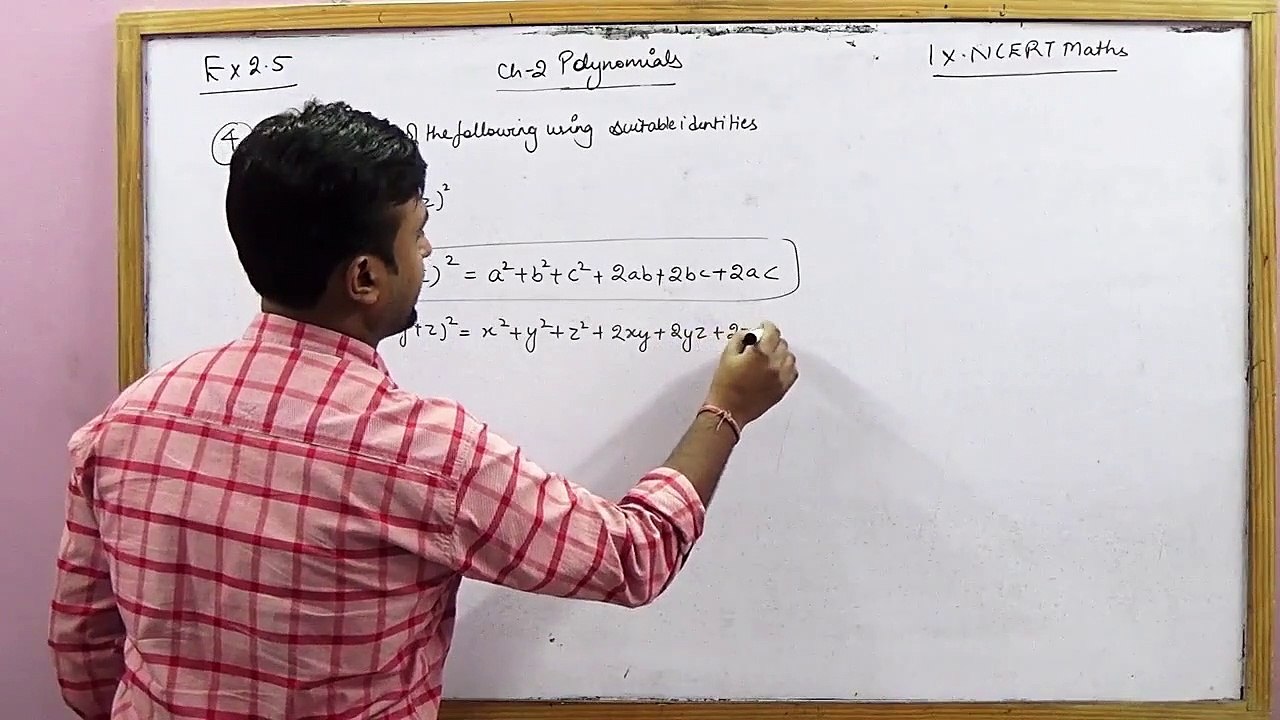 Ex 2.5
Ch-2 Polynomials
IX. NCERT Maths
4 the following using suitable identities
z)²
)² = a²+b²+c²+2ab+2bc+2ac
y+z)² = x²+y²+z²+2xy+2yz+2